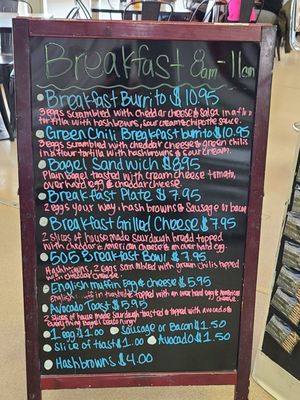 Breakfast 8am-11am
Breakfast Burrito $10.95
3 eggs scrambled with cheddar cheese & salsa in a flour
tortilla with hashbrowns, sour cream chipotle sauce.
Green Chili Breakfast burrito $10.95
3 eggs scrambled with cheddar cheese & green chilis
in a flour tortilla with hashbrowns & sour cream.
Bagel Sandwich $8.95
Plain Bagel toasted with cream cheese tomato,
over hard egg & cheddar cheese.
Breakfast Plate $7.95
2 eggs your way, hashbrowns & Sausage or bacon
Breakfast Grilled Cheese $7.95
2 slices of house made sourdough bread topped
with cheddar & american cheese & an over hard egg.
605 Breakfast Bowl $7.95
Hashbrowns, 2 eggs scrambled with green chilis topped
with cheddar cheese.
English muffin Egg & cheese $5.95
English toasted & topped with an over hard egg & american
cheese
Avocado Toast $5.95
2 slices of house made sourdough toasted & topped with Avocado &
everything Bagel
1 egg $1.00 Sausage or Bacon $1.50
Slice of toast $1.00 Avocado $1.50
Hashbrowns $4.00